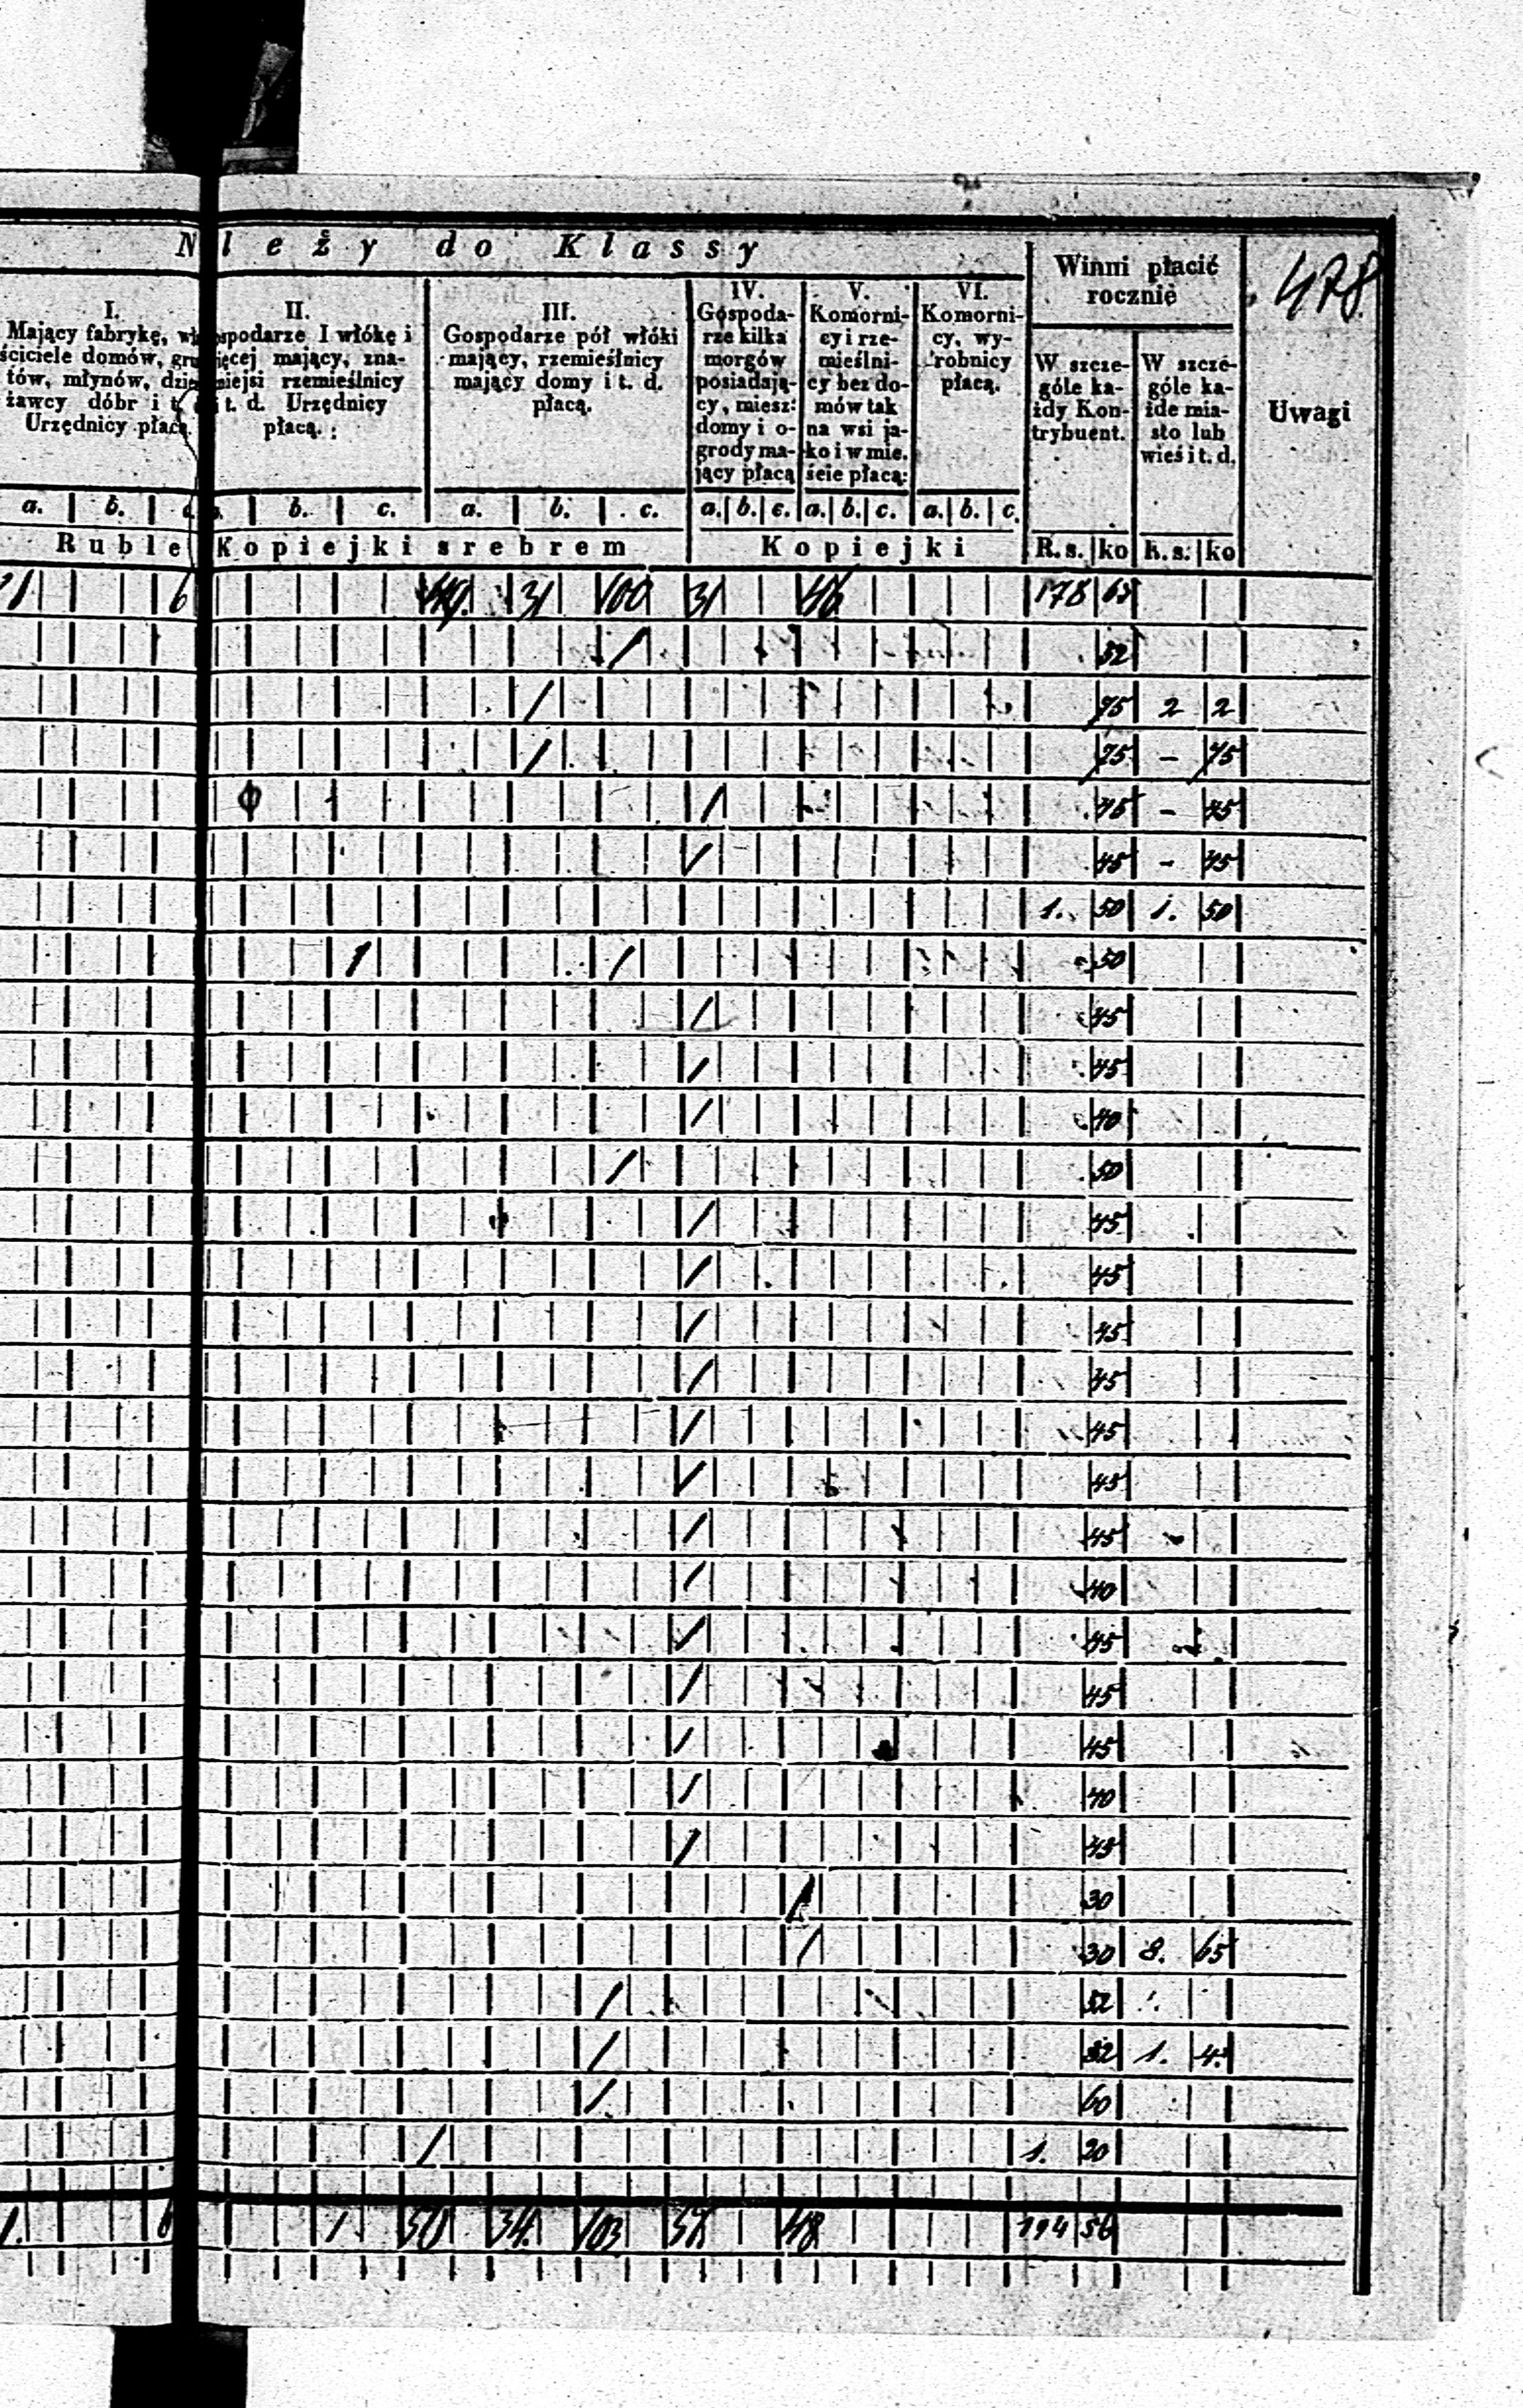 N leży do Klassy
Winni płacić rocznie
478.
I.
Mający fabrykę, wł
ściciele domów, gru
tów, młynów, dzier
żawcy dóbr i t. d
Urzędnicy płacą.
II.
ospodarze I włókę i
ięcej mający, zna-
niejsi rzemieślnicy
i t. d. Urzędnicy
płacą. :
III.
Gospodarze pół włóki
mający, rzemieślnicy
mający domy i t. d.
płacą.
IV.
Gospoda-
rze kilka
morgów
posiadają-
cy, miesz:
domy i o-
grody ma-
jący płacą
V.
Komorni-
cy i rze-
mieślni-
cy bez do-
mów tak
na wsi ja-
ko i w mie.
ście płacą:
VI.
Komorni-
cy, wy-
robnicy
płacą.
W szcze-
góle ka-
żdy Kon-
trybuent.
W szcze-
góle ka-
żde mia-
sto lub
wieś i t. d.
Uwagi
a. b. b. c. a. b. c. a. b. c. a. b. c. a. b. c.
Ruble Kopiejki srebrem Kopiejki R. s. ko R. s. ko
6 49. 31 100 31 46 178
/ 52
/ 75 2 2
/ 75 – 75
/ 45 – 45
/ 45 – 45
1. 50 1. 50
1 / 50
/ 45
/ 45
/ 40
/ 50
/ 45
/ 45
/ 45
/ 45
/ 45
/ 45
/ 45
/ 40
/ 45
/ 45
/ 45
/ 40
/ 45
/ 30
/ 30 8. 65
/ 52
/ 52 1. 4.
/ 60
/ 1. 20
1. 6 1 50 34. 103 48 194 56